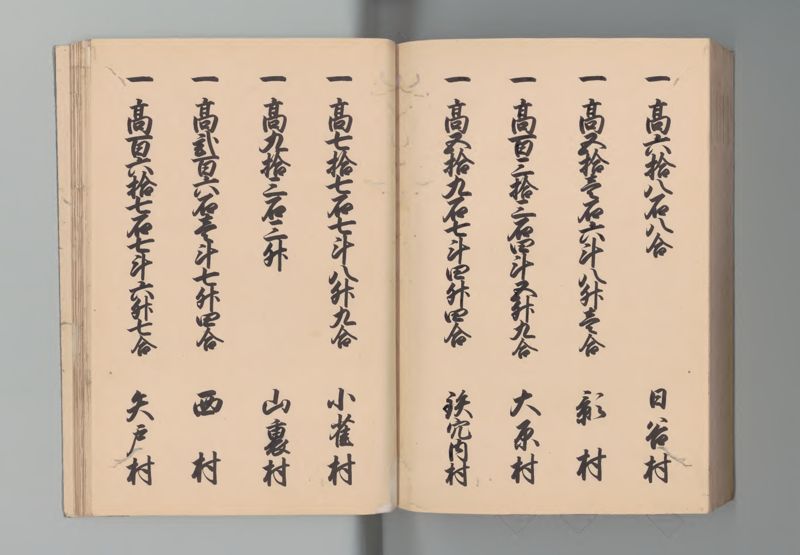 一 高六拾八石八合 日谷村
一 高五拾壱石六斗八升壱合 彰村
一 高百三拾三石四斗五升九合 大原村
一 高五拾九石七斗四升四合 鉄穴内村
一 高七拾七石七斗八升九合 小雀村
一 高九拾三石三升 山裏村
一 高弐百六石壱斗七升四合 西村
一 高百六拾七石七斗六升七合 矢戸村